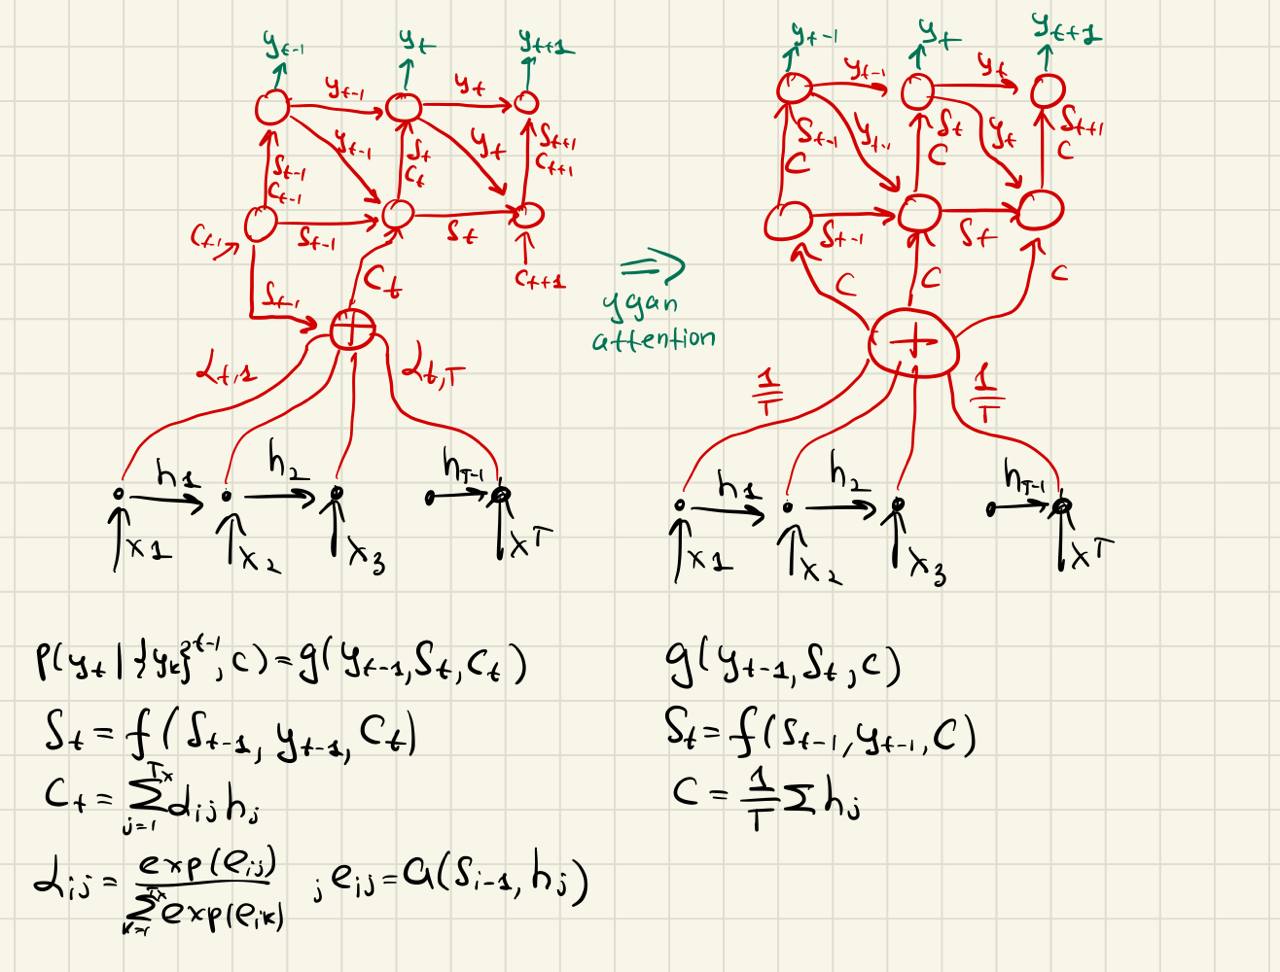 y_{t-1} y_t y_{t+1}
y_{t-1} y_t
y_{t-1} y_t
S_{t-1} S_t S_{t+1}
C_{t-1} C_t C_{t+1}
C_{t-1} S_{t-1} S_t
C_{t+1}
S_{t-1} C_t
+
α_{t,1} α_{t,T}
h_1 h_2 h_{T-1}
x_1 x_2 x_3 x_T
⇒
ygan
attention
y_{t-1} y_t y_{t+1}
y_{t-1} y_t
S_{t-1} y_{t-1} S_t y_t S_{t+1}
C C C
S_{t-1} S_t
C C C
+
1/T 1/T
h_1 h_2 h_{T-1}
x_1 x_2 x_3 x_T
p(y_t | {y_k}^{t-1}, c) = g(y_{t-1}, S_t, C_t)
S_t = f(S_{t-1}, y_{t-1}, C_t)
C_t = Σ_{j=1}^{T_x} α_{ij} h_j
α_{ij} = exp(e_{ij}) / Σ_{k=1}^{T_x} exp(e_{ik}) ; e_{ij} = a(S_{i-1}, h_j)
g(y_{t-1}, S_t, c)
S_t = f(S_{t-1}, y_{t-1}, C)
C = 1/T Σ h_j